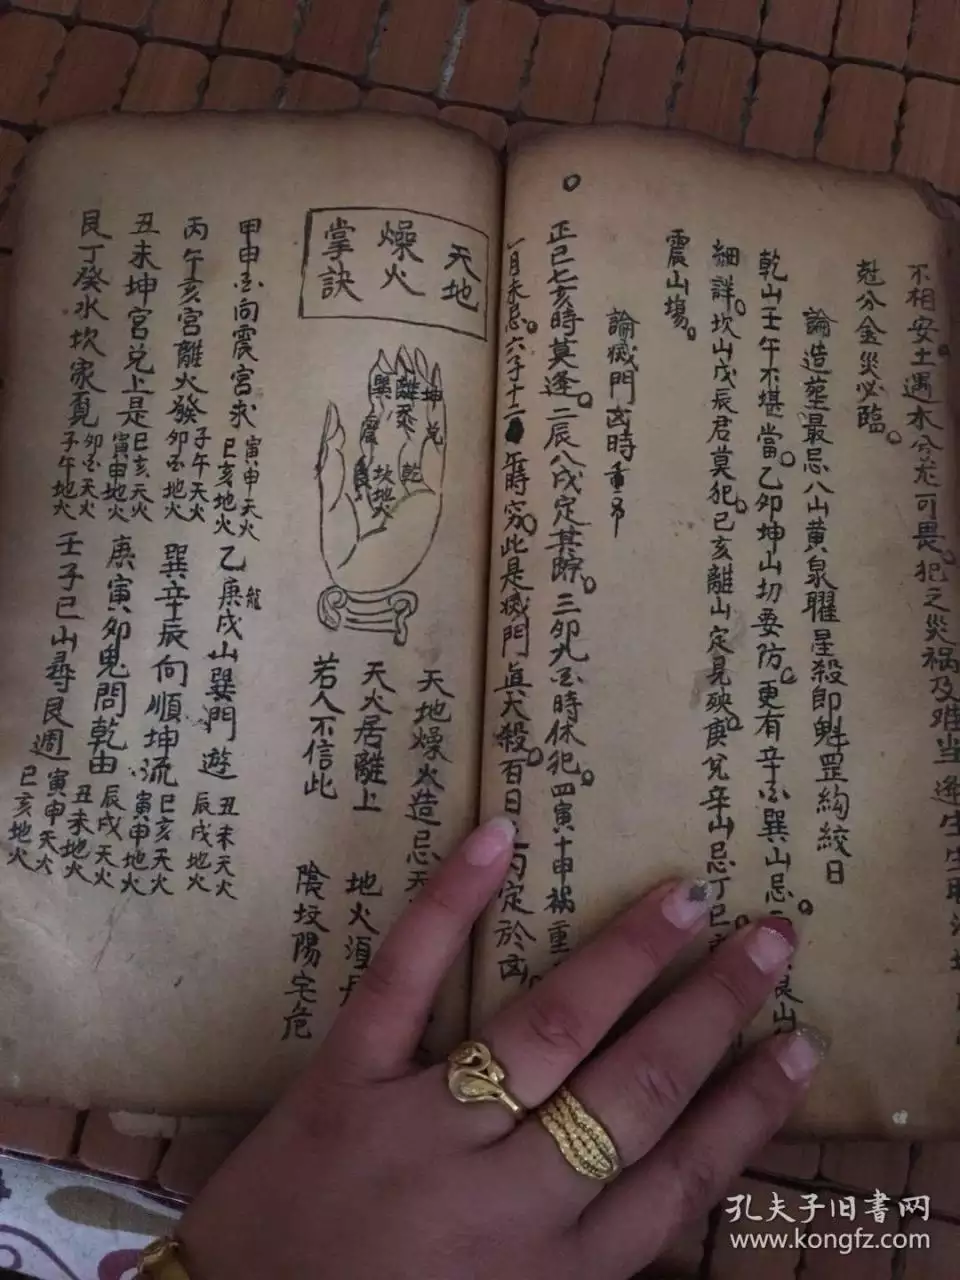 不相安土遇木兮尤可畏犯之災禍及难当逢生
尅分金災必臨
論造塟最忌八山黄泉曜星殺即魁罡絇絞日
乾山壬午不堪當乙卯坤山切要防更有辛酉巽山忌
艮山
細詳坎山戊辰君莫犯己亥離山定見殃庚兌辛山忌丁巳
震山塲
論滅門凶時重吊
正巳七亥時莫逢二辰八戌定其踪三卯九酉時休犯四寅十申禍重
午時穷此是滅門真大殺百日
定於凶
天地
燥火
掌訣
巽
離
坤
震
兌
乾
坎地火
天地燥火造忌
天火居離上
地火須
若人不信此
陰坟陽宅危
甲申酉向震宮求
寅申天火
巳亥地火
乙庚戌山巽門遊
龍
丑未天火
辰戌地火
丙午亥宮離火發
子午天火
卯酉地火
巽辛辰向順坤流
巳亥天火
寅申地火
丑未坤宮兌上是
巳亥天火
寅申地火
庚寅卯鬼問乾由
辰戌天火
丑未地火
艮丁癸水坎家覓
卯酉天火
子午地火
壬子巳山尋艮週
寅申天火
巳亥地火
孔夫子旧书网
www.kongfz.com